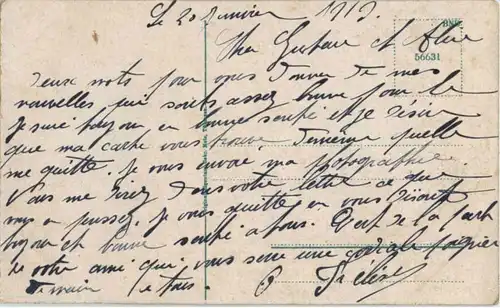 Le 20 Janvier 1919
BNK
56631
Cher Gustave et Aline
Deux mots pour vous donner de mes
nouvelles qui sont assez bonne pour le
je suis toujour en bonne santé et je désir
que ma carte vous trouve de même quelle
me quitte. Je vous envoie ma photographie
Vous me direz dans votre lettre ce que
vous en pussez. je vous quitte en vous disant
bonjour et bonne santé a tous. C'est de la part
de votre ami qui vous serre une cordiale poignée
de main a tous.